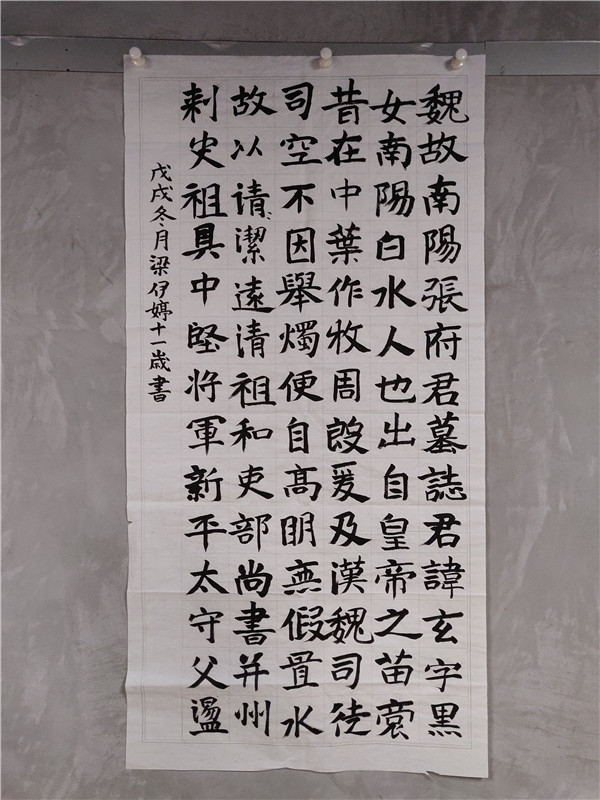 魏故南陽張府君墓誌君諱玄字黑
女南陽白水人也出自皇帝之苗裔
昔在中葉作牧周殷爰及漢魏司徒
司空不因舉燭便自高明無假置水
故以請潔遠清祖和吏部尚書并州
刺史祖具中堅将軍新平太守父盪
戊戌冬月梁伊婷十一歲書